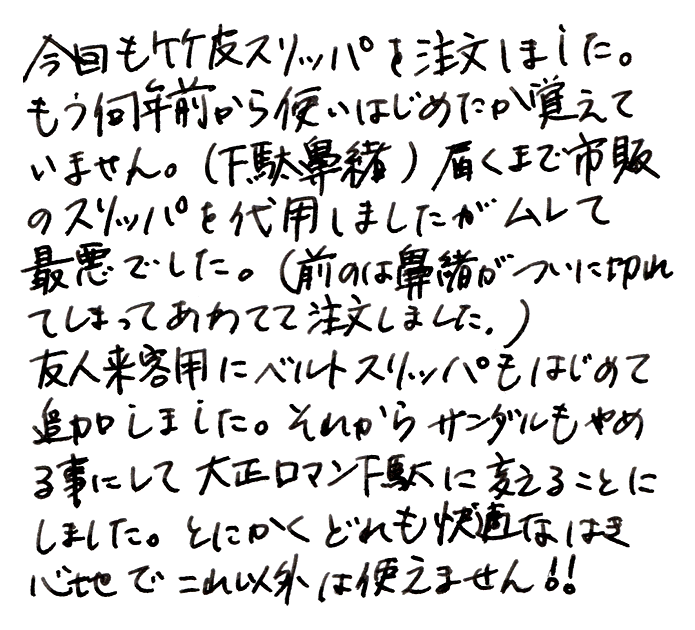 今回も竹皮スリッパを注文しました。
もう何年前から使いはじめたか覚えて
いません。(下駄鼻緒)届くまで市販
のスリッパを代用しましたがムレて
最悪でした。(前のは鼻緒がついに切れ
てしまってあわてて注文しました。)
友人来客用にベルトスリッパもはじめて
追加しました。それからサンダルもやめ
る事にして大正ロマン下駄に変えることに
しました。とにかくどれも快適なはき
心地でこれ以外は使えません!!